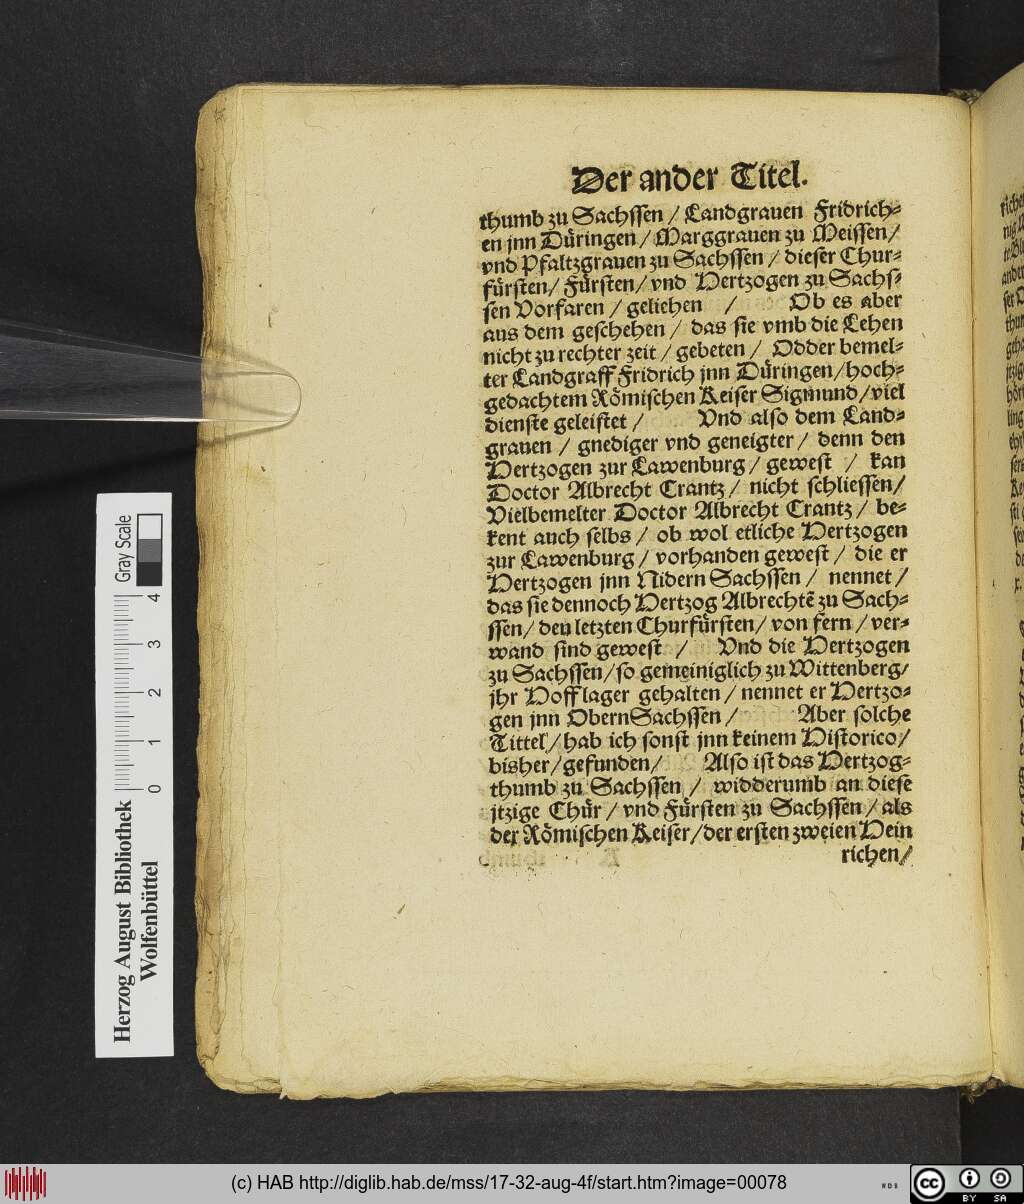 Der ander Titel.
thumb zu Sachssen / Landgrauen Fridrich⸗
en jnn Düringen / Marggrauen zu Meissen /
vnd Pfaltzgrauen zu Sachssen / dieser Chur⸗
fürsten / Fürsten / vnd Hertzogen zu Sachs⸗
sen Vorfaren / geliehen / Ob es aber
aus dem geschehen / das sie vmb die Lehen
nicht zu rechter zeit / gebeten / Odder bemel⸗
ter Landgraff Fridrich jnn Düringen / hoch⸗
gedachtem Römischen Keiser Sigmund / viel
dienste geleistet / Vnd also dem Land⸗
grauen / gnediger vnd geneigter / denn den
Hertzogen zur Lawenburg / gewest / kan
Doctor Albrecht Crantz / nicht schliessen /
Vielbemelter Doctor Albrecht Crantz / be⸗
kent auch selbs / ob wol etliche Hertzogen
zur Lawenburg / vorhanden gewest / die er
Hertzogen jnn Nidern Sachssen / nennet /
das sie dennoch Hertzog Albrechtē zu Sach⸗
ssen / den letzten Churfürsten / von fern / ver⸗
wand sind gewest / Vnd die Hertzogen
zu Sachssen / so gemeiniglich zu Wittenberg /
jhr Hofflager gehalten / nennet er Hertzo⸗
gen jnn ObernSachssen / Aber solche
Tittel / hab ich sonst jnn keinem Historico /
bisher / gefunden / Also ist das Hertzog⸗
thumb zu Sachssen / widderumb an diese
jtzige Chür / vnd Fürsten zu Sachssen / als
der Römischen Keiser / der ersten zweien Hein
richen /
Herzog August Bibliothek
Wolfenbüttel
Gray Scale
0 1 2 3 4
(c) HAB http://diglib.hab.de/mss/17-32-aug-4f/start.htm?image=00078
WDB
cc BY SA